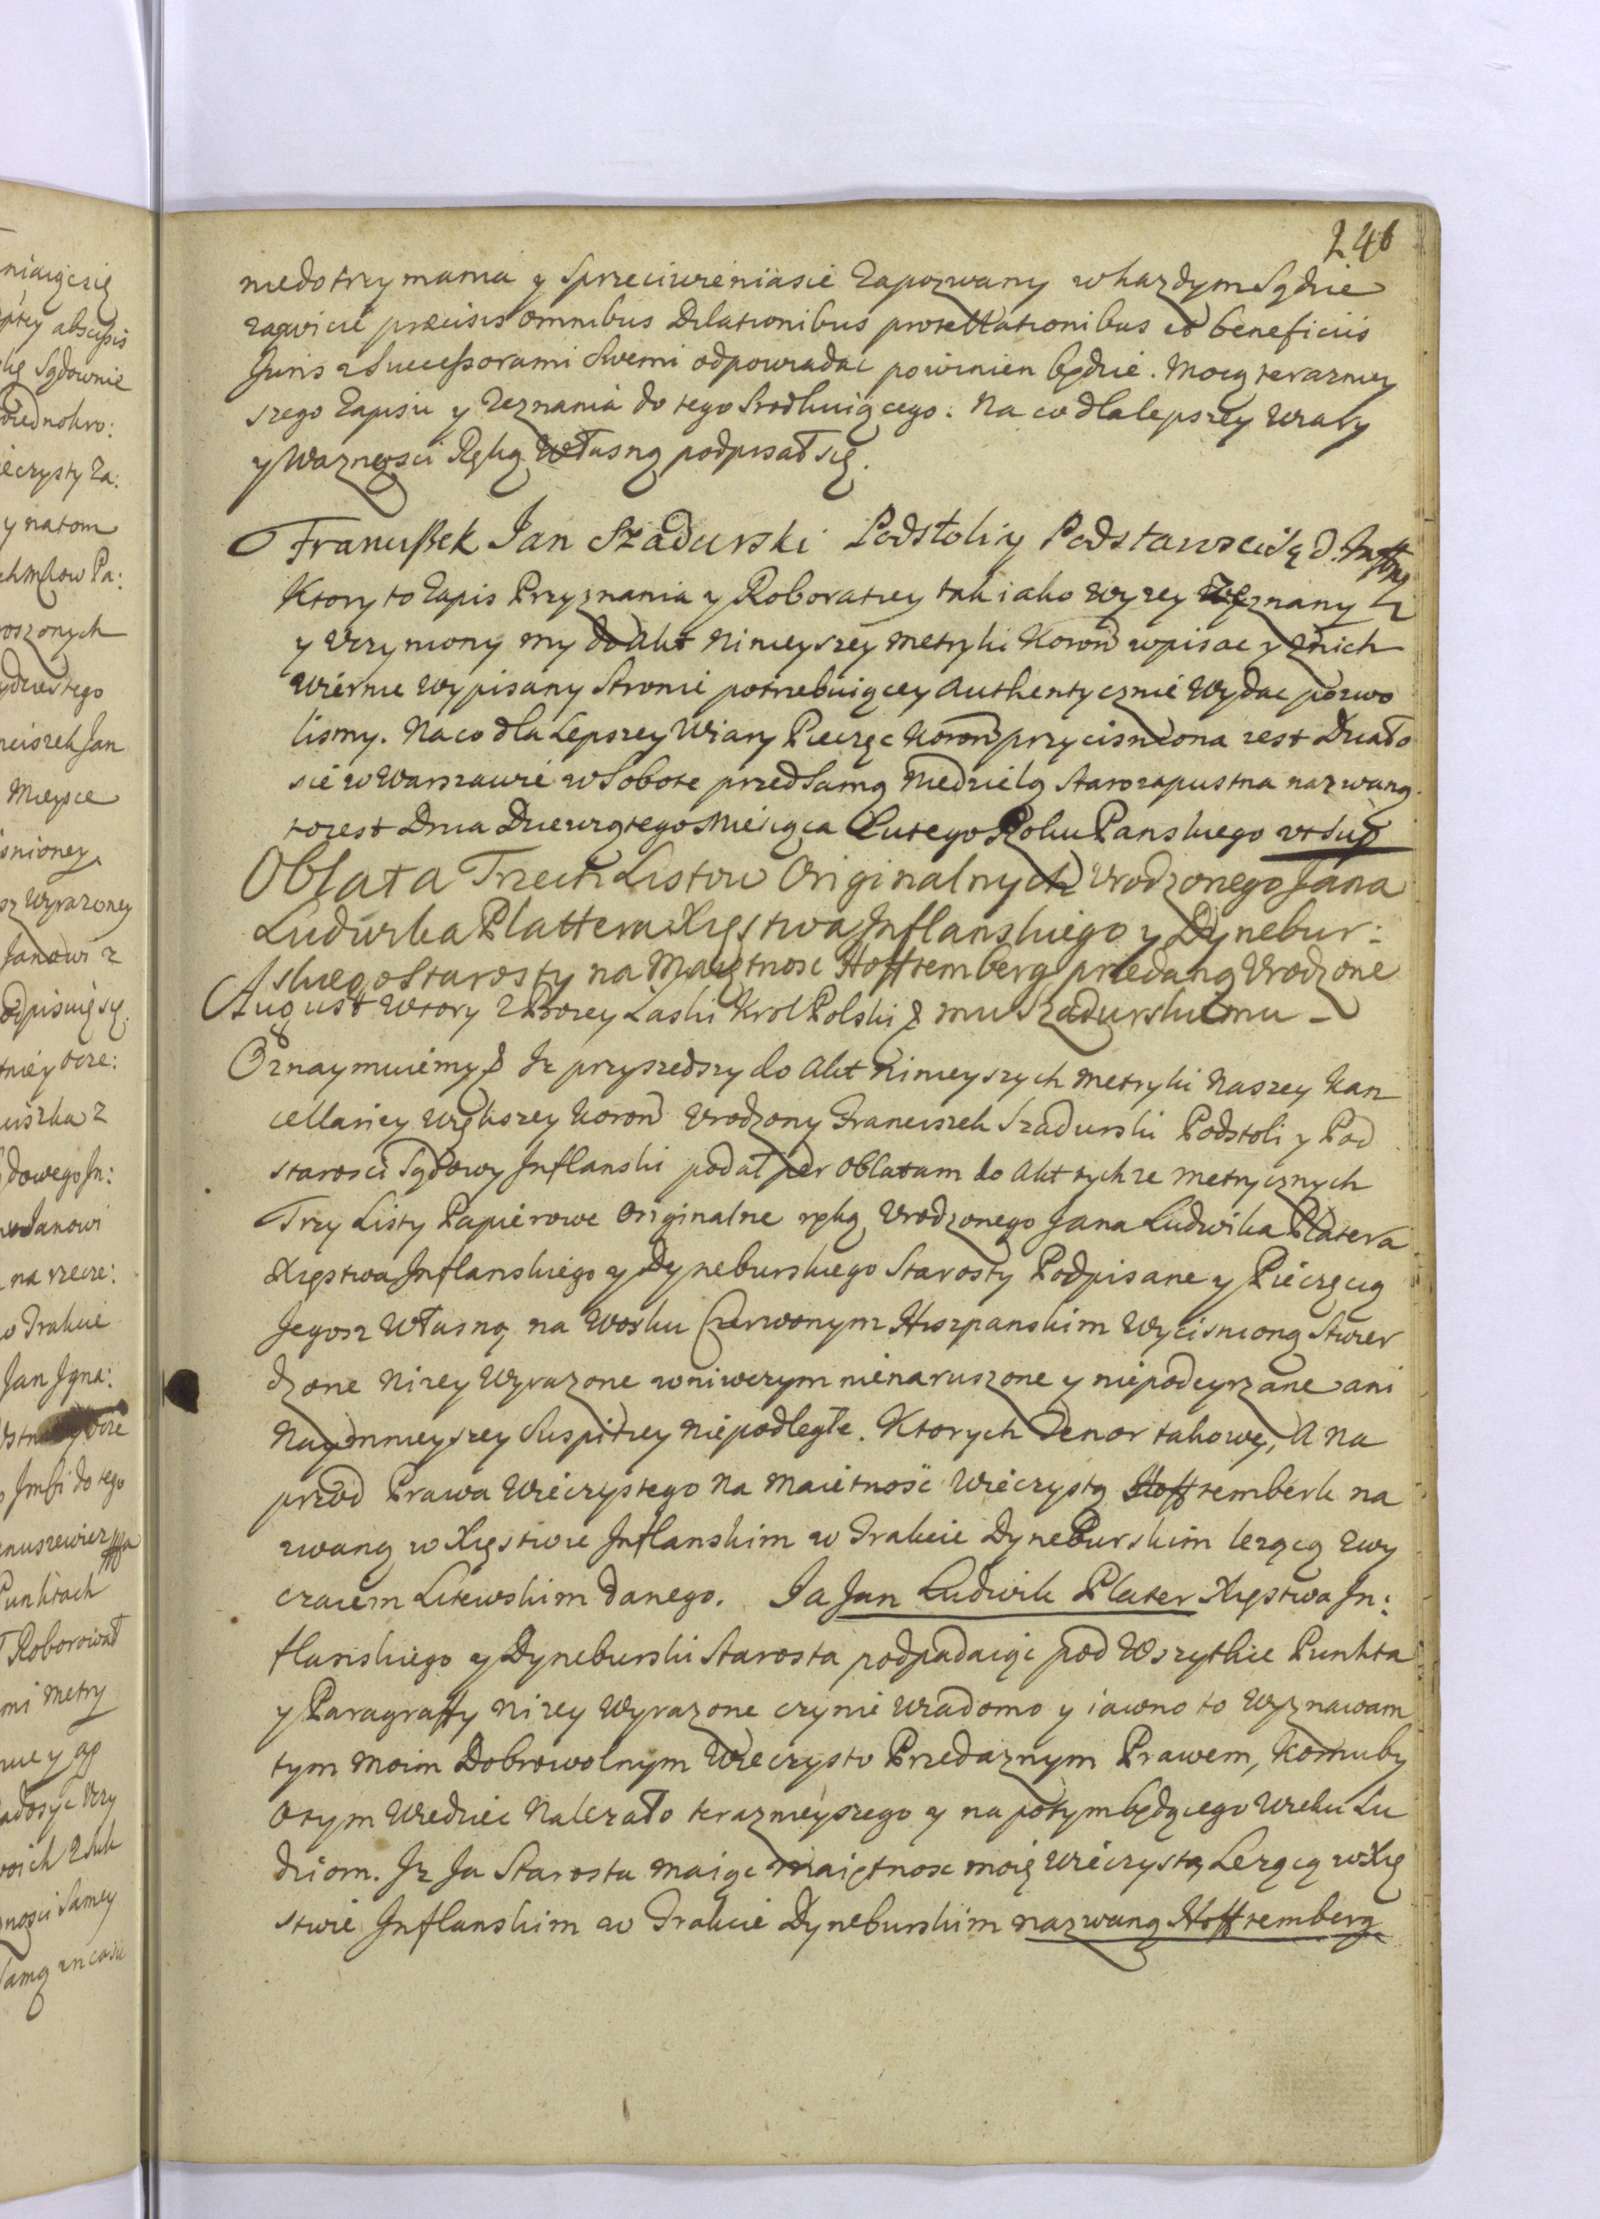 246
niedotrzymania y Sprzeciwieniasie Zapozwany wkazdym Sądzie
zawicie precisis omnibus Dilationibus protestationibus et beneficiis
Juris z Successorami Swemi odpowiadac powinien będzie. Mocą terazniey
szego Zapisu y Zeznania do tego Srodkuiącego. Na co dla lepszey Wiary
y Waznosci Ręką Własną podpisał się.
Franciszek Jan Szadurski Podstoli y Podstarosci Są D.
Ktory to Zapis Przyznania y Roboratiey tak iako wyzey Zeznany
y Uczyniony my do Akt ninieyszey Metryki Koron wpisac y znich
Wiernie Wypisany Stronie potrzebuiącey Authentycznie Wydac pozwo
lismy. Na co dla Lepszey Wiary Pieczęc Koron przycisniona iest Działo
sie w Warszawie w Sobote przed Samą Niedzielą Starozapustna nazwaną
to iest Dnia Dziewiątego Miesiąca Lutego Roku Panskiego ut Sup
Oblata Trzech Listow Originalnych Urodzonego Jana
Ludwika Plattera Xięstwa Inflanskiego y Dynebur:
skiego Starosty na Maiętnosc Hoffremberg przedaną Urodzone
August Wtory z Bozey Laski Krol Polski & mu Szadurskiemu
Oznaymuiemy & Iz przyszedszy do Akt ninieyszych Metryki Naszey Kan
cellariey Większey Koron Urodzony Franciszek Szadurski Podstoli y Pod
starosci Sądowy Inflanski podał per Oblatam do Akt tychze metrycznych
Trzy Listy Papierowe Originalne ręką Urodzonego Jana Ludwika Platera
Xięstwa Inflanskiego y Dyneburskiego Starosty Podpisane y Pieczęcią
Jegosz Własną na Wosku Czerwonym Hiszpanskim Wycisnioną Stwier
dzone Nizey Wyrazone wniwczym nienaruszone y niepodeyrzane ani
Naymnieyszey Suspitiey Niepodległe. Ktorych Tenor takowy, A na
przod Prawa Wieczystego Na Maietnosc Wieczystą Hoffremberk na
zwaną w Xięstwie Inflanskim w Trakcie Dyneburskim lezącą zwy
czaiem Litewskim danego. Ja Jan Ludwik Plater Xięstwa In:
flanskiego y Dyneburski Starosta podpadaiąc pod Wszytkie Punkta
y Paragraffy nizey Wyrazone czynie wiadomo y iawno to Wyznawam
tym Moim Dobrowolnym Wieczysto Przedaznym Prawem, Komuby
Otym Wiedziec Nalezało terazneyszego y na potym będącego Wieku Lu
dziom. Iz Ja Starosta Maiąc maiętnosc moię Wieczystą Lezącą w Xię
stwie Inflanskim w Trakcie Dyneburskim nazwaną Hoffremberg